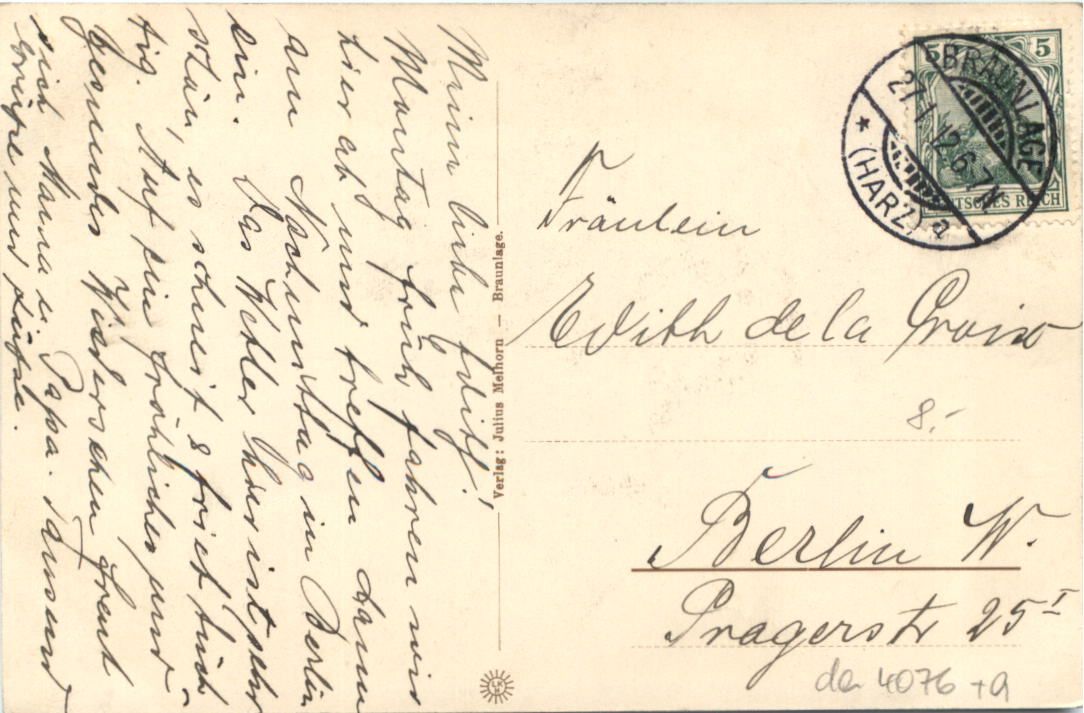 Meine liebe Edith!
Montag früh fahren wir
hier ab und treffen dann
am Nachmittag in Berlin
ein. Das Wetter hier ist sehr
schön, es schneit & friert tüch-
tig. Auf ein fröhliches und
gesundes Wiedersehen freut
sich Mama u. Papa. Tausend
Grüße und Küsse.
Verlag: Julius Melhorn — Braunlage.
5 5
DEUTSCHES REICH
BRAUNLAGE
27.1.12.6-7N
* (HARZ) a
Fräulein
Edith de la Croix
8.-
Berlin W.
Pragerstr 25 I
da 4076 +a